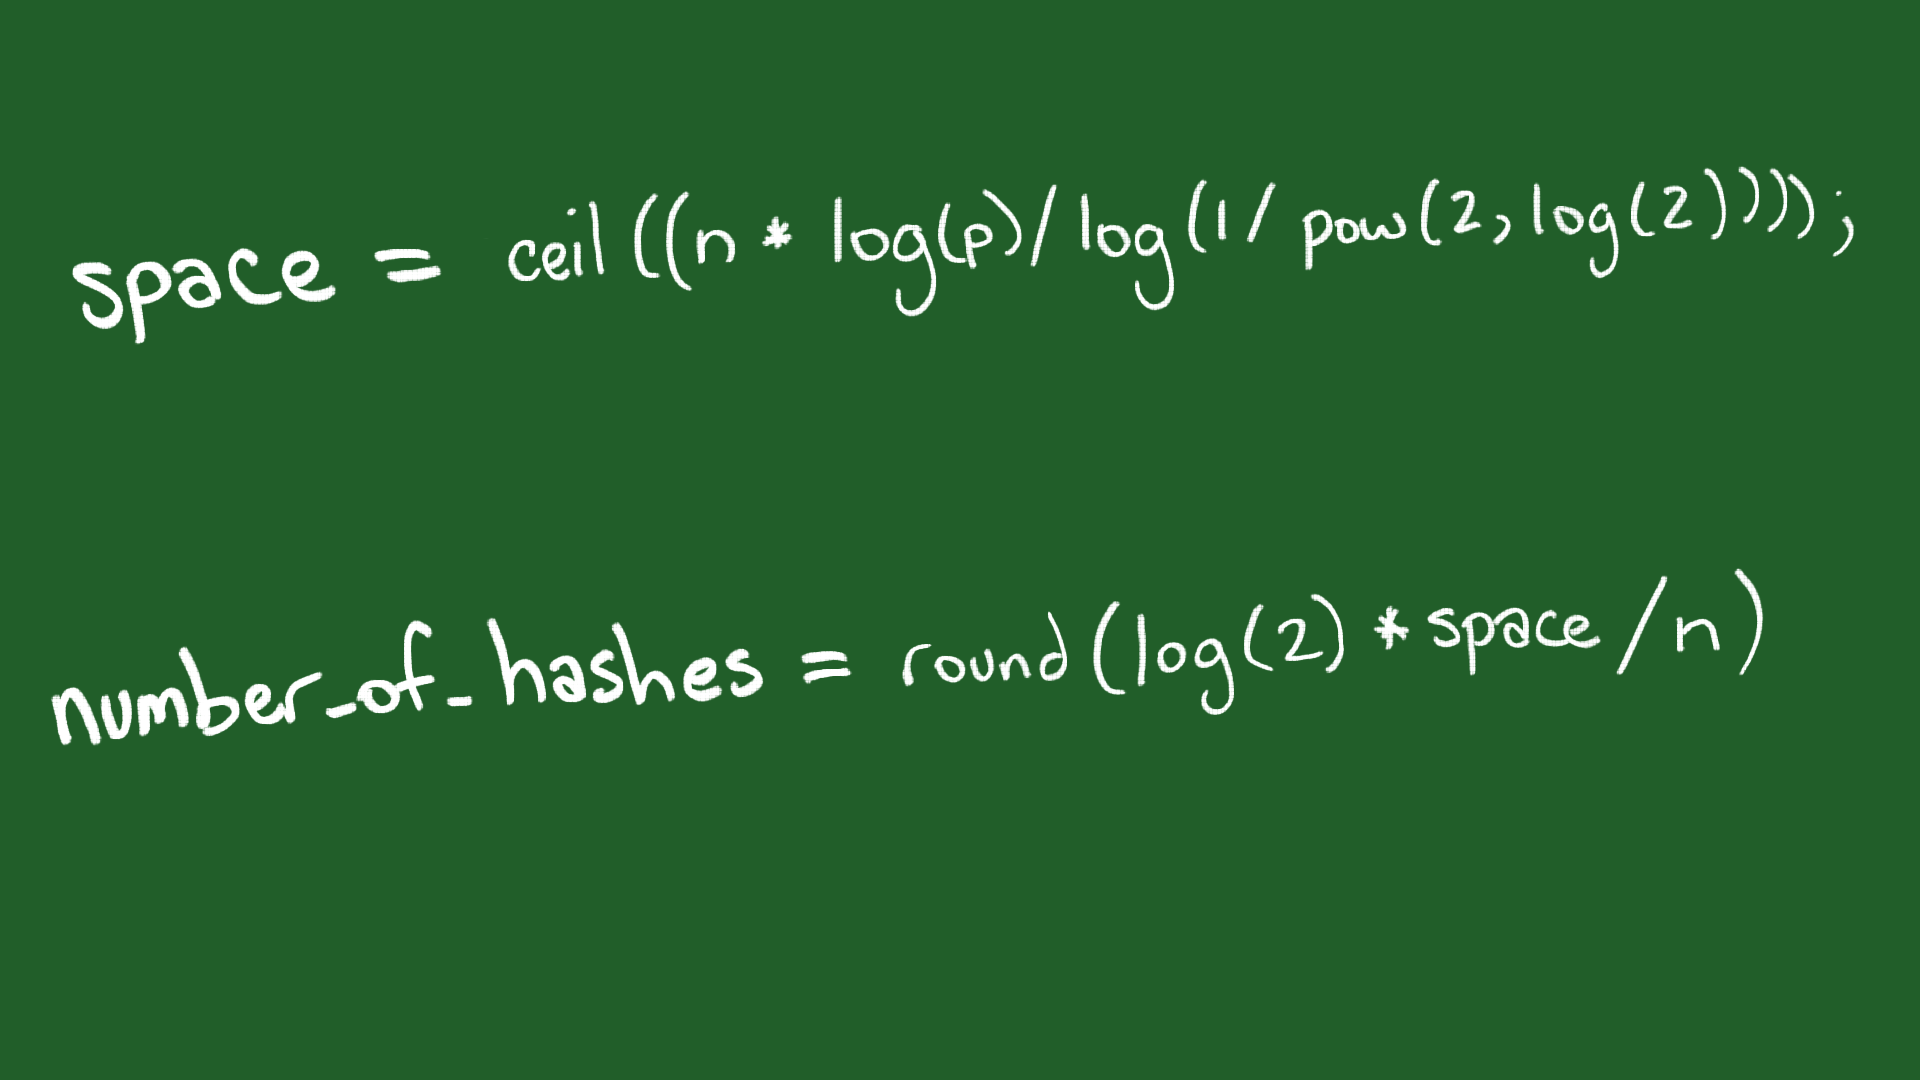 space = ceil((n * log(p)/log(1/pow(2,log(2))));
number_of_hashes = round(log(2) * space/n)